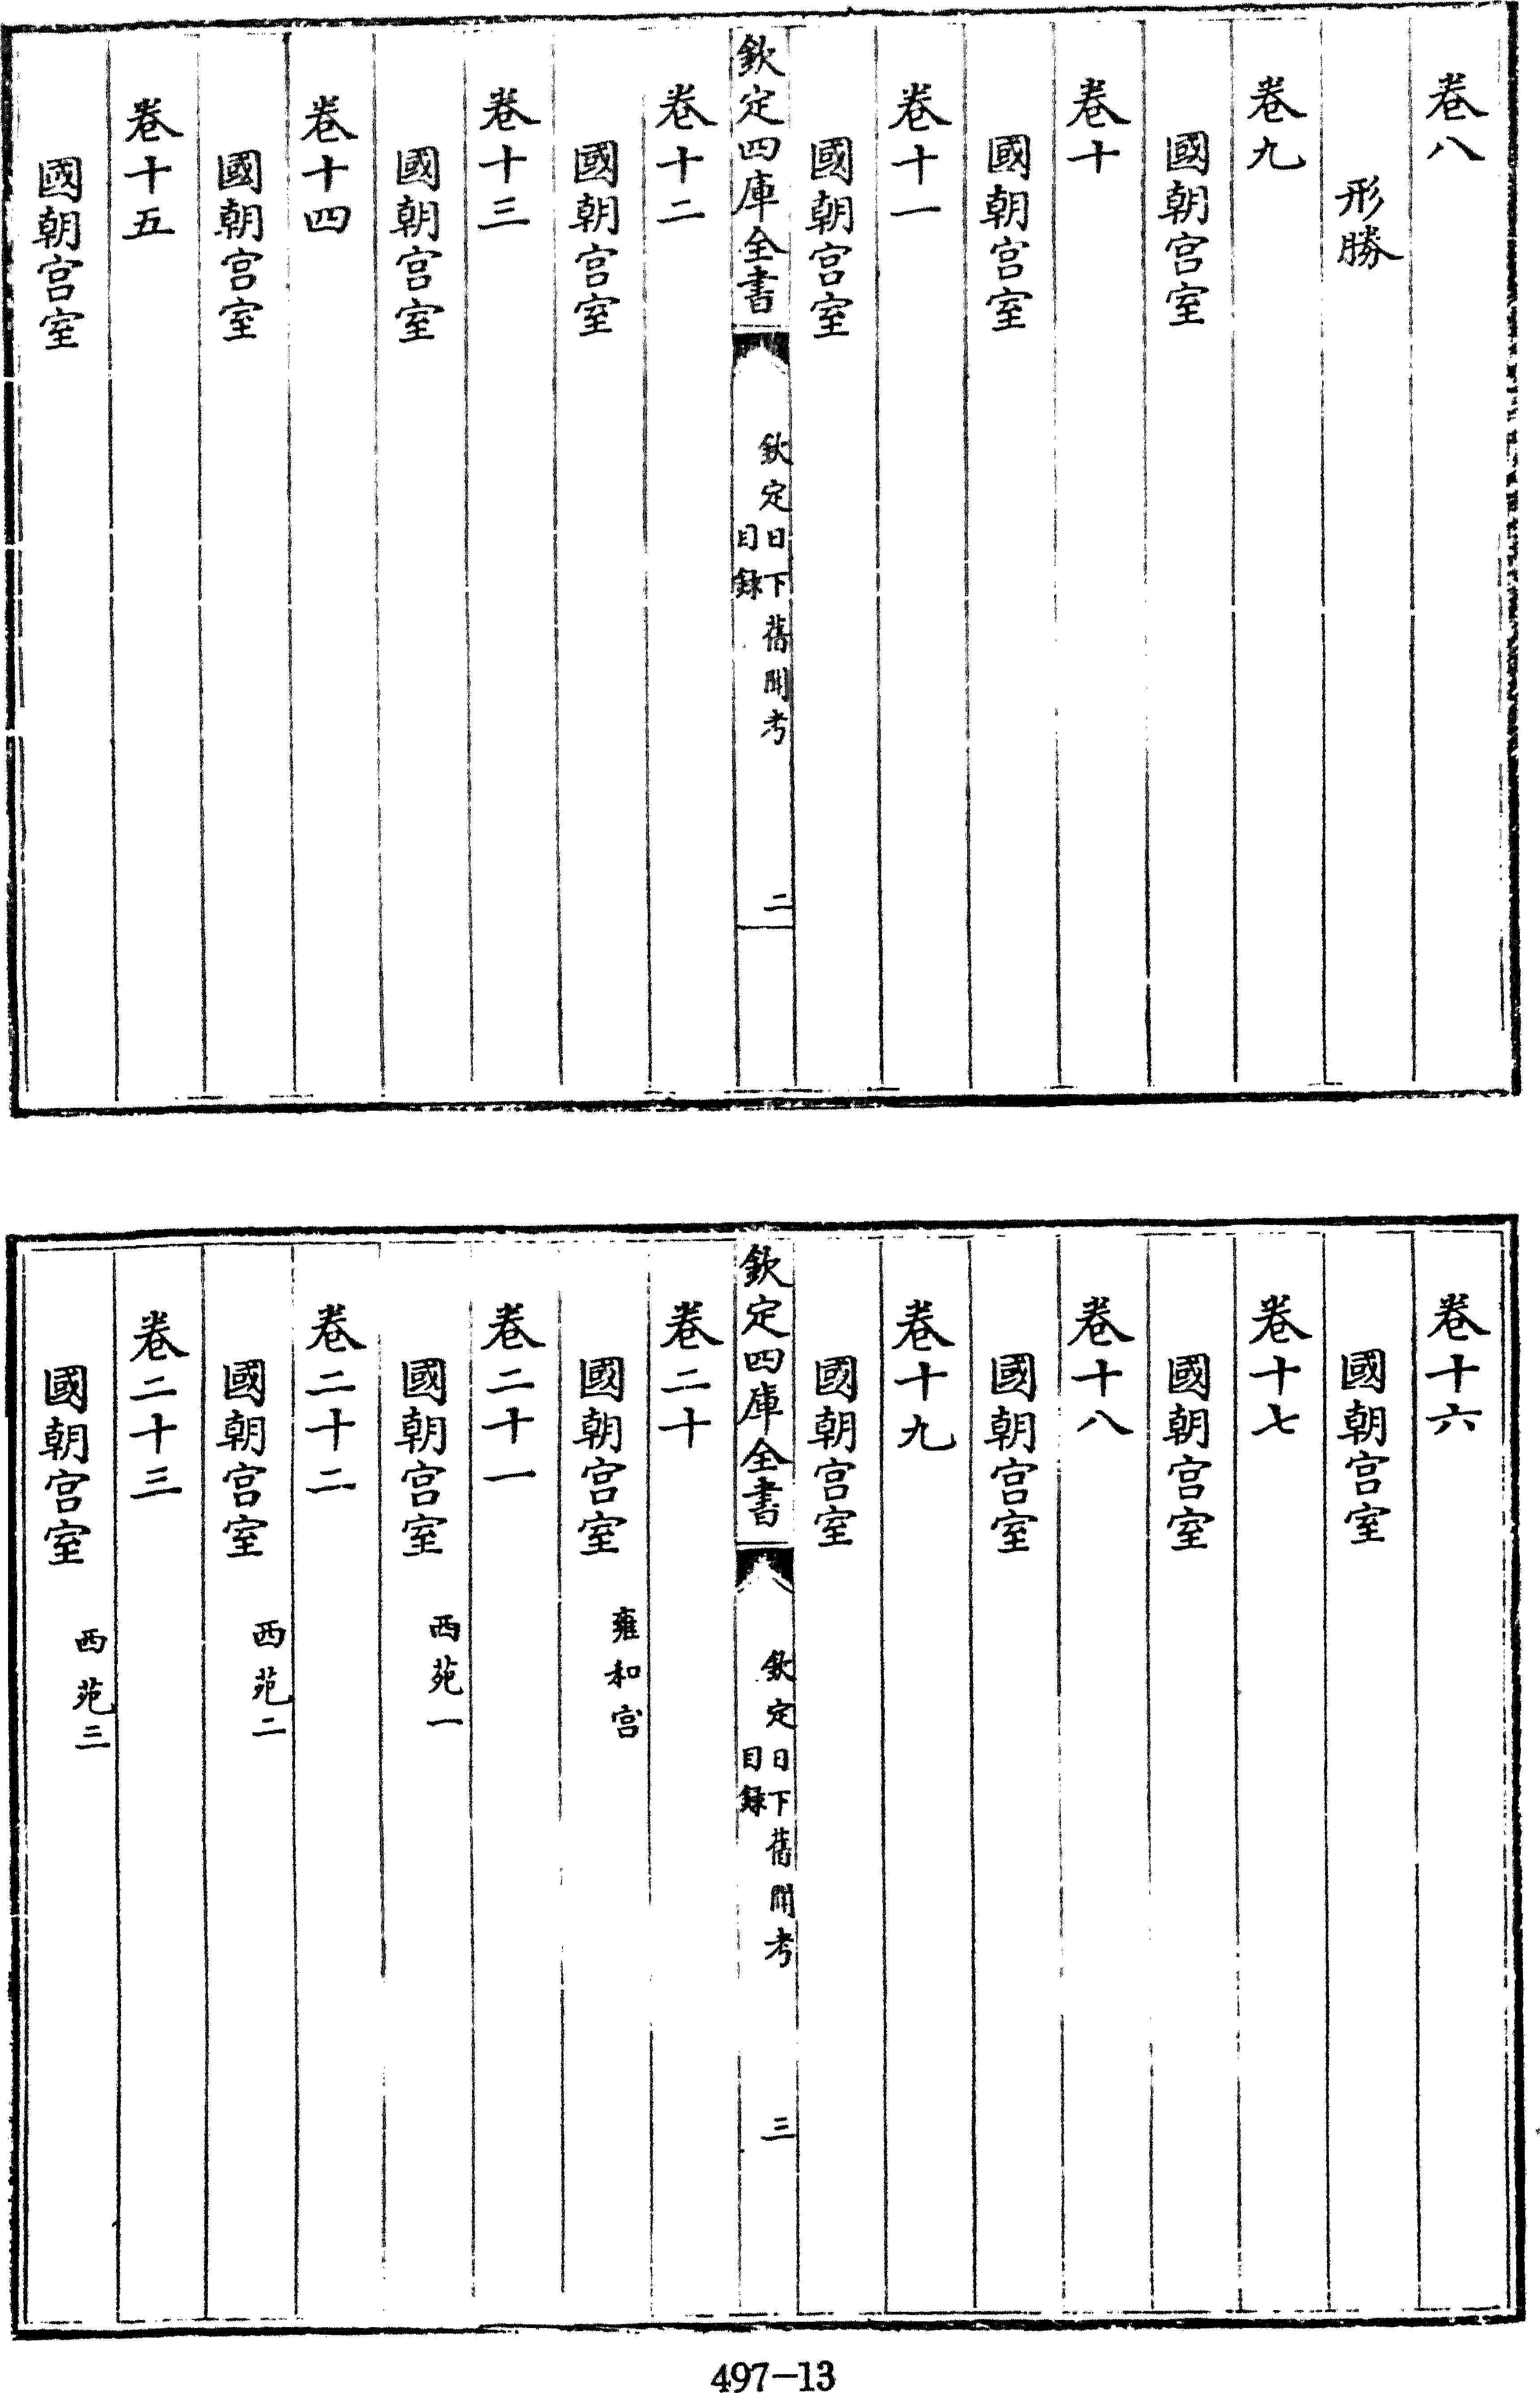 卷八
形勝
卷九
國朝宫室
卷十
國朝宫室
卷十一
國朝宫室
欽定四庫全書
欽定日下舊聞考
目錄
二
卷十二
國朝宫室
卷十三
國朝宫室
卷十四
國朝宫室
卷十五
國朝宫室
卷十六
國朝宫室
卷十七
國朝宫室
卷十八
國朝宫室
卷十九
國朝宫室
欽定四庫全書
欽定日下舊聞考
目錄
三
卷二十
國朝宫室 雍和宫
卷二十一
國朝宫室 西苑一
卷二十二
國朝宫室 西苑二
卷二十三
國朝宫室 西苑三
497-13